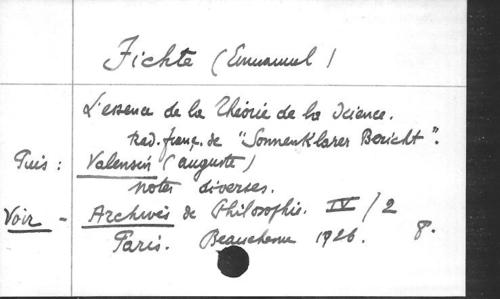 Fichte (Emmanuel)
L'essence de la Théorie de la Science.
trad. franç. de "Sonnenklarer Bericht".
Puis : Valensin (auguste)
notes diverses.
Voir - Archives de Philosophie. IV / 2
Paris. Beauchesne 1926. 8.